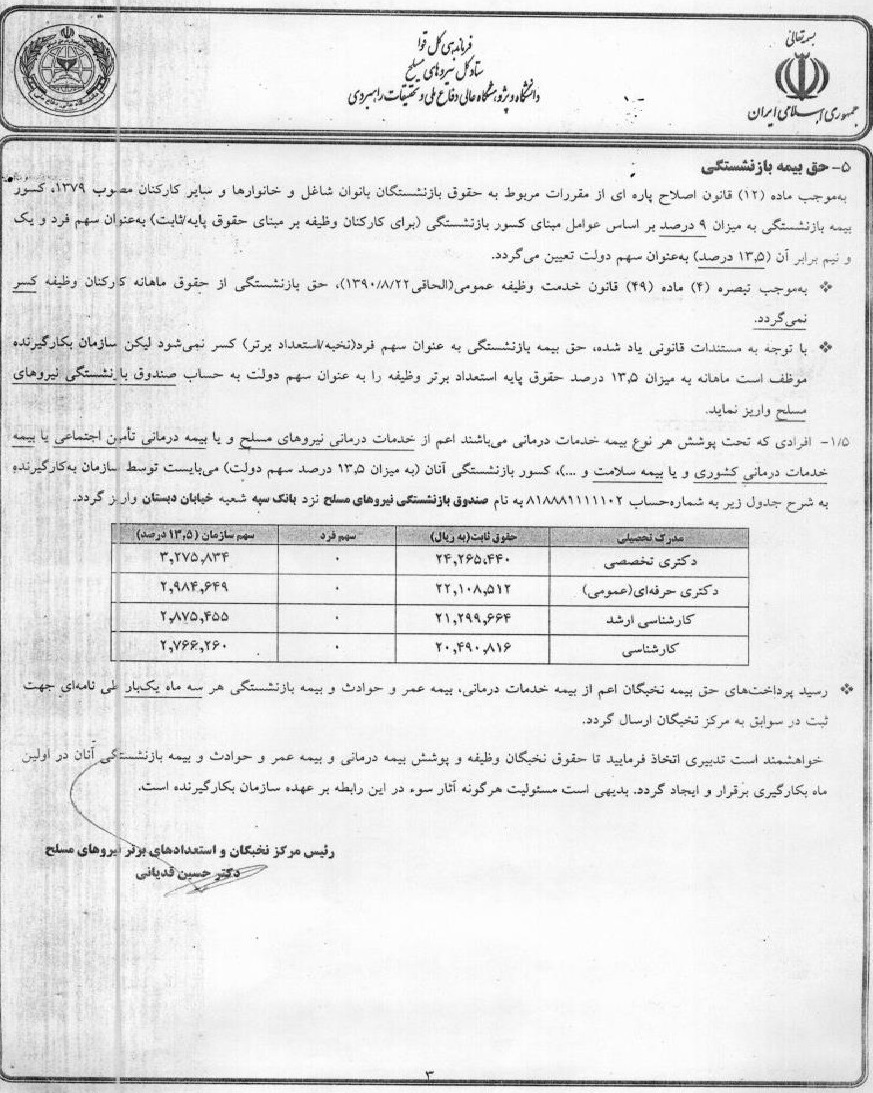 بسمه تعالی
جمهوری اسلامی ایران
فرماندهی کل قوا
ستاد کل نیروهای مسلح
دانشگاه و پژوهشگاه عالی دفاع ملی و تحقیقات راهبردی
۵- حق بیمه بازنشستگی
به‌موجب ماده (۱۲) قانون اصلاح پاره ای از مقررات مربوط به حقوق بازنشستگان بانوان شاغل و خانوارها و سایر کارکنان مصوب ۱۳۷۹، کسور
بیمه بازنشستگی به میزان ۹ درصد بر اساس عوامل مبنای کسور بازنشستگی (برای کارکنان وظیفه بر مبنای حقوق پایه/ثابت) به‌عنوان سهم فرد و یک
و نیم برابر آن (۱۳٫۵ درصد) به‌عنوان سهم دولت تعیین می‌گردد.
❖ به‌موجب تبصره (۴) ماده (۴۹) قانون خدمت وظیفه عمومی(الحاقی ۱۳۹۰/۸/۲۲)، حق بازنشستگی از حقوق ماهانه کارکنان وظیفه کسر
نمی‌گردد.
❖ با توجه به مستندات قانونی یاد شده، حق بیمه بازنشستگی به عنوان سهم فرد(نخبه/استعداد برتر) کسر نمی‌شود لیکن سازمان بکارگیرنده
موظف است ماهانه به میزان ۱۳٫۵ درصد حقوق پایه استعداد برتر وظیفه را به عنوان سهم دولت به حساب صندوق بازنشستگی نیروهای
مسلح واریز نماید.
۱/۵- افرادی که تحت پوشش هر نوع بیمه خدمات درمانی می‌باشند اعم از خدمات درمانی نیروهای مسلح و یا بیمه درمانی تأمین اجتماعی یا بیمه
خدمات درمانی کشوری و یا بیمه سلامت و ...)، کسور بازنشستگی آنان (به میزان ۱۳٫۵ درصد سهم دولت) می‌بایست توسط سازمان به‌کارگیرنده
به شرح جدول زیر به شماره‌حساب ۸۱۸۸۸۱۱۱۱۱۰۲ به نام صندوق بازنشستگی نیروهای مسلح نزد بانک سپه شعبه خیابان دبستان واریز گردد.
مدرک تحصیلی حقوق ثابت(به ریال) سهم فرد سهم سازمان (۱۳٫۵ درصد)
دکتری تخصصی ۲۴,۲۶۵,۴۴۰ ۰ ۳,۲۷۵,۸۳۴
دکتری حرفه‌ای(عمومی) ۲۲,۱۰۸,۵۱۲ ۰ ۲,۹۸۴,۶۴۹
کارشناسی ارشد ۲۱,۲۹۹,۶۶۴ ۰ ۲,۸۷۵,۴۵۵
کارشناسی ۲۰,۴۹۰,۸۱۶ ۰ ۲,۷۶۶,۲۶۰
❖ رسید پرداخت‌های حق بیمه نخبگان اعم از بیمه خدمات درمانی، بیمه عمر و حوادث و بیمه بازنشستگی هر سه ماه یک‌بار طی نامه‌ای جهت
ثبت در سوابق به مرکز نخبگان ارسال گردد.
خواهشمند است تدبیری اتخاذ فرمایید تا حقوق نخبگان وظیفه و پوشش بیمه درمانی و بیمه عمر و حوادث و بیمه بازنشستگی آنان در اولین
ماه بکارگیری برقرار و ایجاد گردد. بدیهی است مسئولیت هرگونه آثار سوء در این رابطه بر عهده سازمان بکارگیرنده است.
رئیس مرکز نخبگان و استعدادهای برتر نیروهای مسلح
دکتر حسین قدیانی
۳